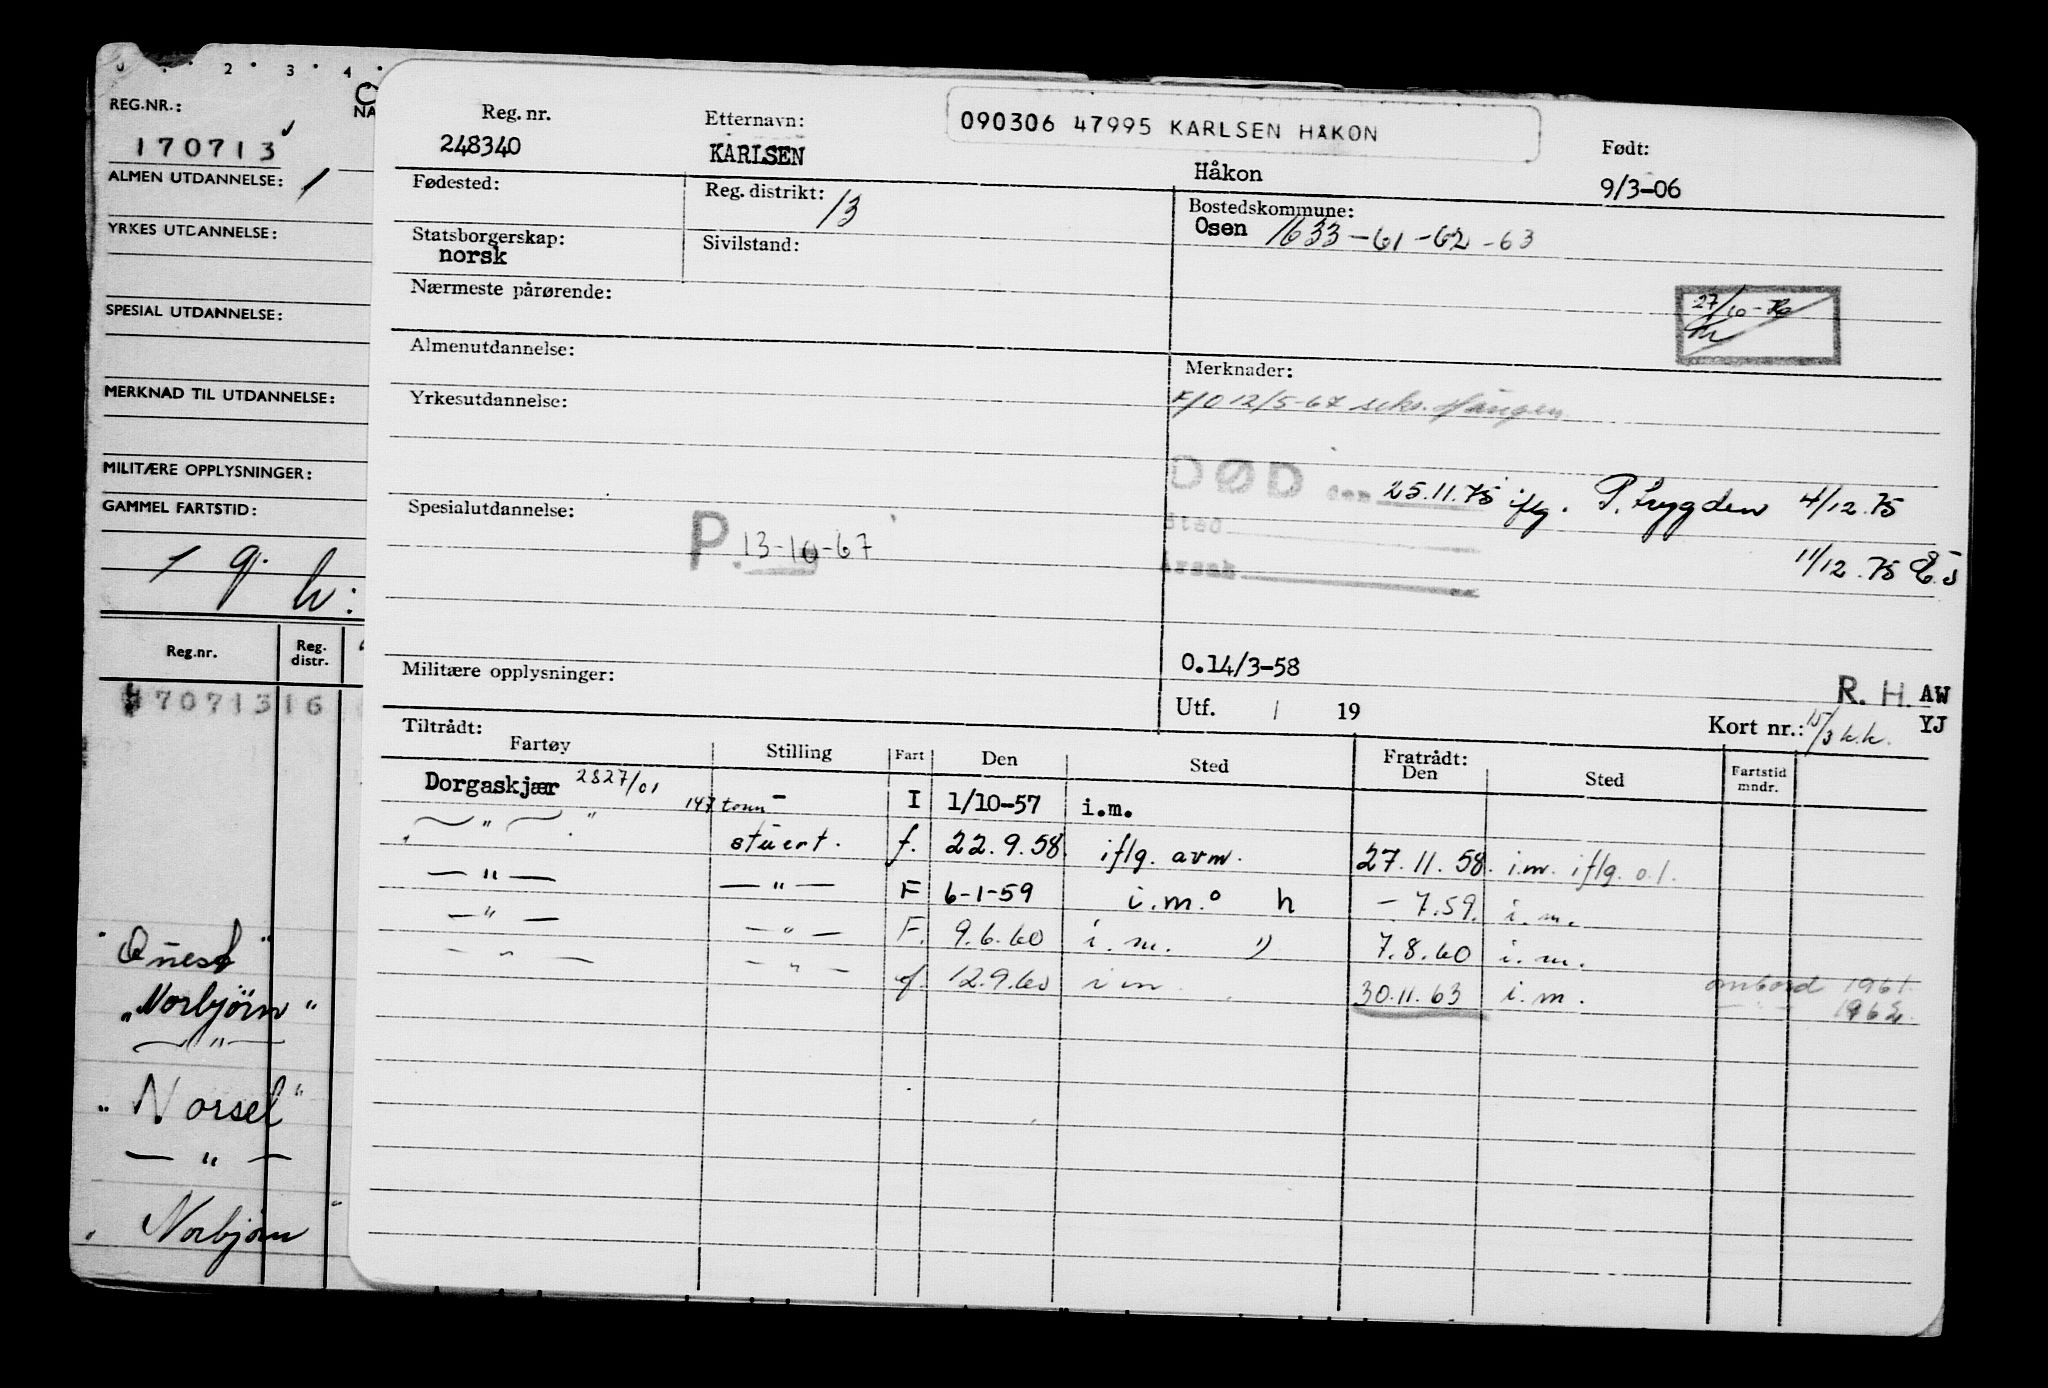 2 3 4
REG.NR.:
NA
170713
ALMEN UTDANNELSE: 1
YRKES UTDANNELSE:
SPESIAL UTDANNELSE:
MERKNAD TIL UTDANNELSE:
MILITÆRE OPPLYSNINGER:
GAMMEL FARTSTID:
Reg.nr. Reg. distr.
7071316
"Quest"
"Norbjörn"
— " —
"Norsel"
— " —
"Norbjørn"
Reg. nr. 248340
Etternavn: KARLSEN
090306 47995 KARLSEN HÅKON
Håkon
Født: 9/3-06
Fødested:
Reg. distrikt: 13
Bostedskommune: Osen 1633-61-62-63
Statsborgerskap: norsk
Sivilstand:
Nærmeste pårørende:
27/10-
Almenutdannelse:
Merknader:
F/O 12/5-67
Yrkesutdannelse:
DØD den 25.11.75 iflg. P. trygden 4/12.75
Sted
Årsak
11/12.75 E.J
Spesialutdannelse:
P. 13-10-67
Militære opplysninger:
O.14/3-58
R. H. AW
Utf. / 19
Kort nr.: 15/3 k.k. YJ
Tiltrådt:
Fartøy Stilling Fart Den Sted Fratrådt: Den Sted Fartstid mndr.
Dorgaskjær 2827/01 147 tonn - I 1/10-57 i.m.
— " — " stuert. f. 22.9.58. iflg. avm. 27.11.58. i.m. iflg. o.l.
— " — — " — F 6-1-59 i.m. h - 7.59. i.m.
— " — — " — F. 9.6.60 i.m. " 7.8.60 i.m.
— " — — " — f. 12.9.60 i m 30.11.63 i.m. ombord 1961.
— " — 1962